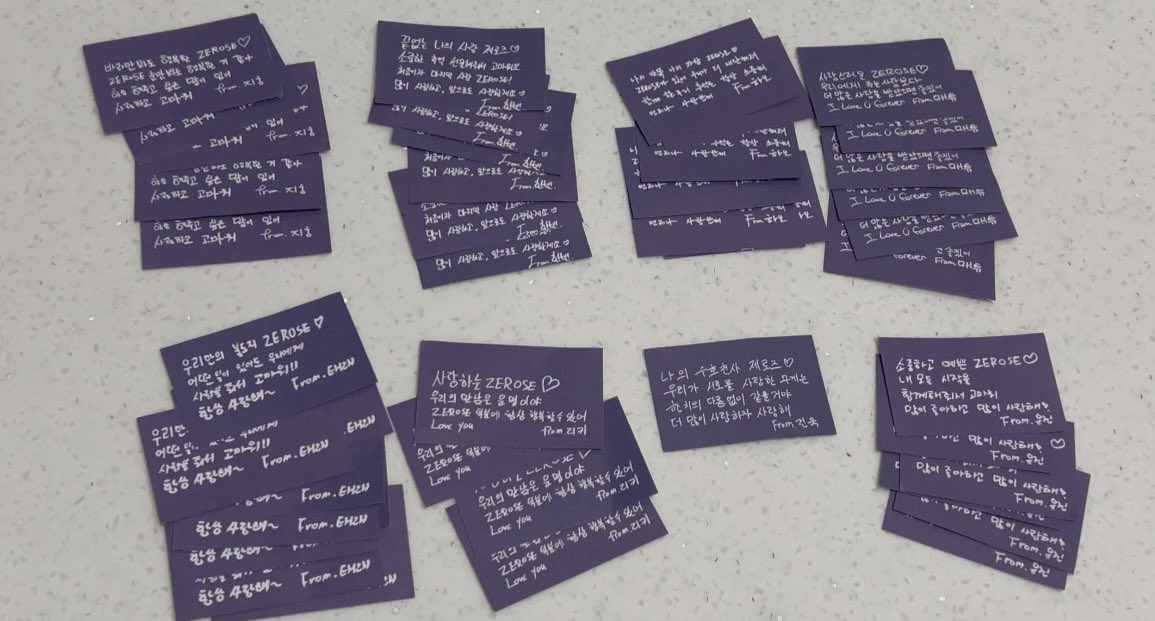 바라만봐도 행복한 ZEROSE♡
ZEROSE 행복한 거 같아
싶은 맘이 있어
사랑하고 고마워 from.지웅
고마워 있어
from.지웅
행복한 거 같아
싶은 맘이 있어
사랑하고 고마워 from.지웅
싶은 맘이 있어
사랑하고 고마워 from.지웅
끝없는 나의 사랑 제로즈♡
소중한 추억 선물해줘서 고마워요
처음이자 마지막 사랑 ZEROSE!
많이 사랑하고, 앞으로도 사랑할게요♡
From.한빈
ZEROSE!
많이 사랑하고, 앞으로도 사랑할게요♡
From.한빈
처음이자
많이 사랑하고, 앞으로도 사랑할게요♡
From.한빈
처음이자 마지막 사랑 ZEROSE!
많이 사랑하고, 앞으로도 사랑할게요♡
From.한빈
많이 사랑하고, 앞으로도 사랑할게요♡
From.한빈
나의 나의 자랑 ZEROSE♡
ZEROSE가 있어
함께 추억은 항상 소중해
언제나 사랑한다 From 하오
항상 소중해
언제나 사랑한다 From 하오
언제나 사랑한다 From 하오
사랑스러운 ZEROSE♡
우리에게 주는 사랑보다
더 많은 사랑을 받았으면 좋겠어
I Love U forever From 매튜
I Love U forever From 매튜
더 많은 사랑을 받았으면 좋겠어
I Love U forever From 매튜
더 많은 사랑을 받았으면 좋겠어
I Love U forever From 매튜
더 많은 사랑을 받았으면 좋겠어
I Love U forever From 매튜
forever From 매튜
우리만의 ZEROSE♡
어떤 일이 있어도 우리에게
사랑을 줘서 고마워!!
항상 사랑해~ From.태래
우리만
사랑을 줘서 고마워!!
항상 사랑해~ From.태래
항상 사랑해~ From.태래
항상 사랑해~ From.태래
항상 사랑해~ From.태래
사랑하는 ZEROSE♡
우리의 만남은 운명이야
ZEROSE 덕분에 항상 행복할수 있어
Love you from.리키
우리의
ZEROSE
Love you
우리의 만남은 운명이야
ZEROSE 덕분에 항상 행복할수 있어
Love you from.리키
ZEROSE 덕분에 항상 행복할수 있어
Love you from.리키
나의 수호천사 제로즈♡
우리가 서로를 사랑한 무게는
한치의 다름없이 같을거야
더 많이 사랑하자 사랑해
From.건욱
소중하고 예쁜 ZEROSE♡
내 모든 시작을
함께해줘서 고마워
많이 좋아하고 많이 사랑해용
From.유진
많이 사랑해용
From.유진
좋아하고 많이 사랑해용
From.유진
좋아하고 많이 사랑해용
From.유진
From.유진